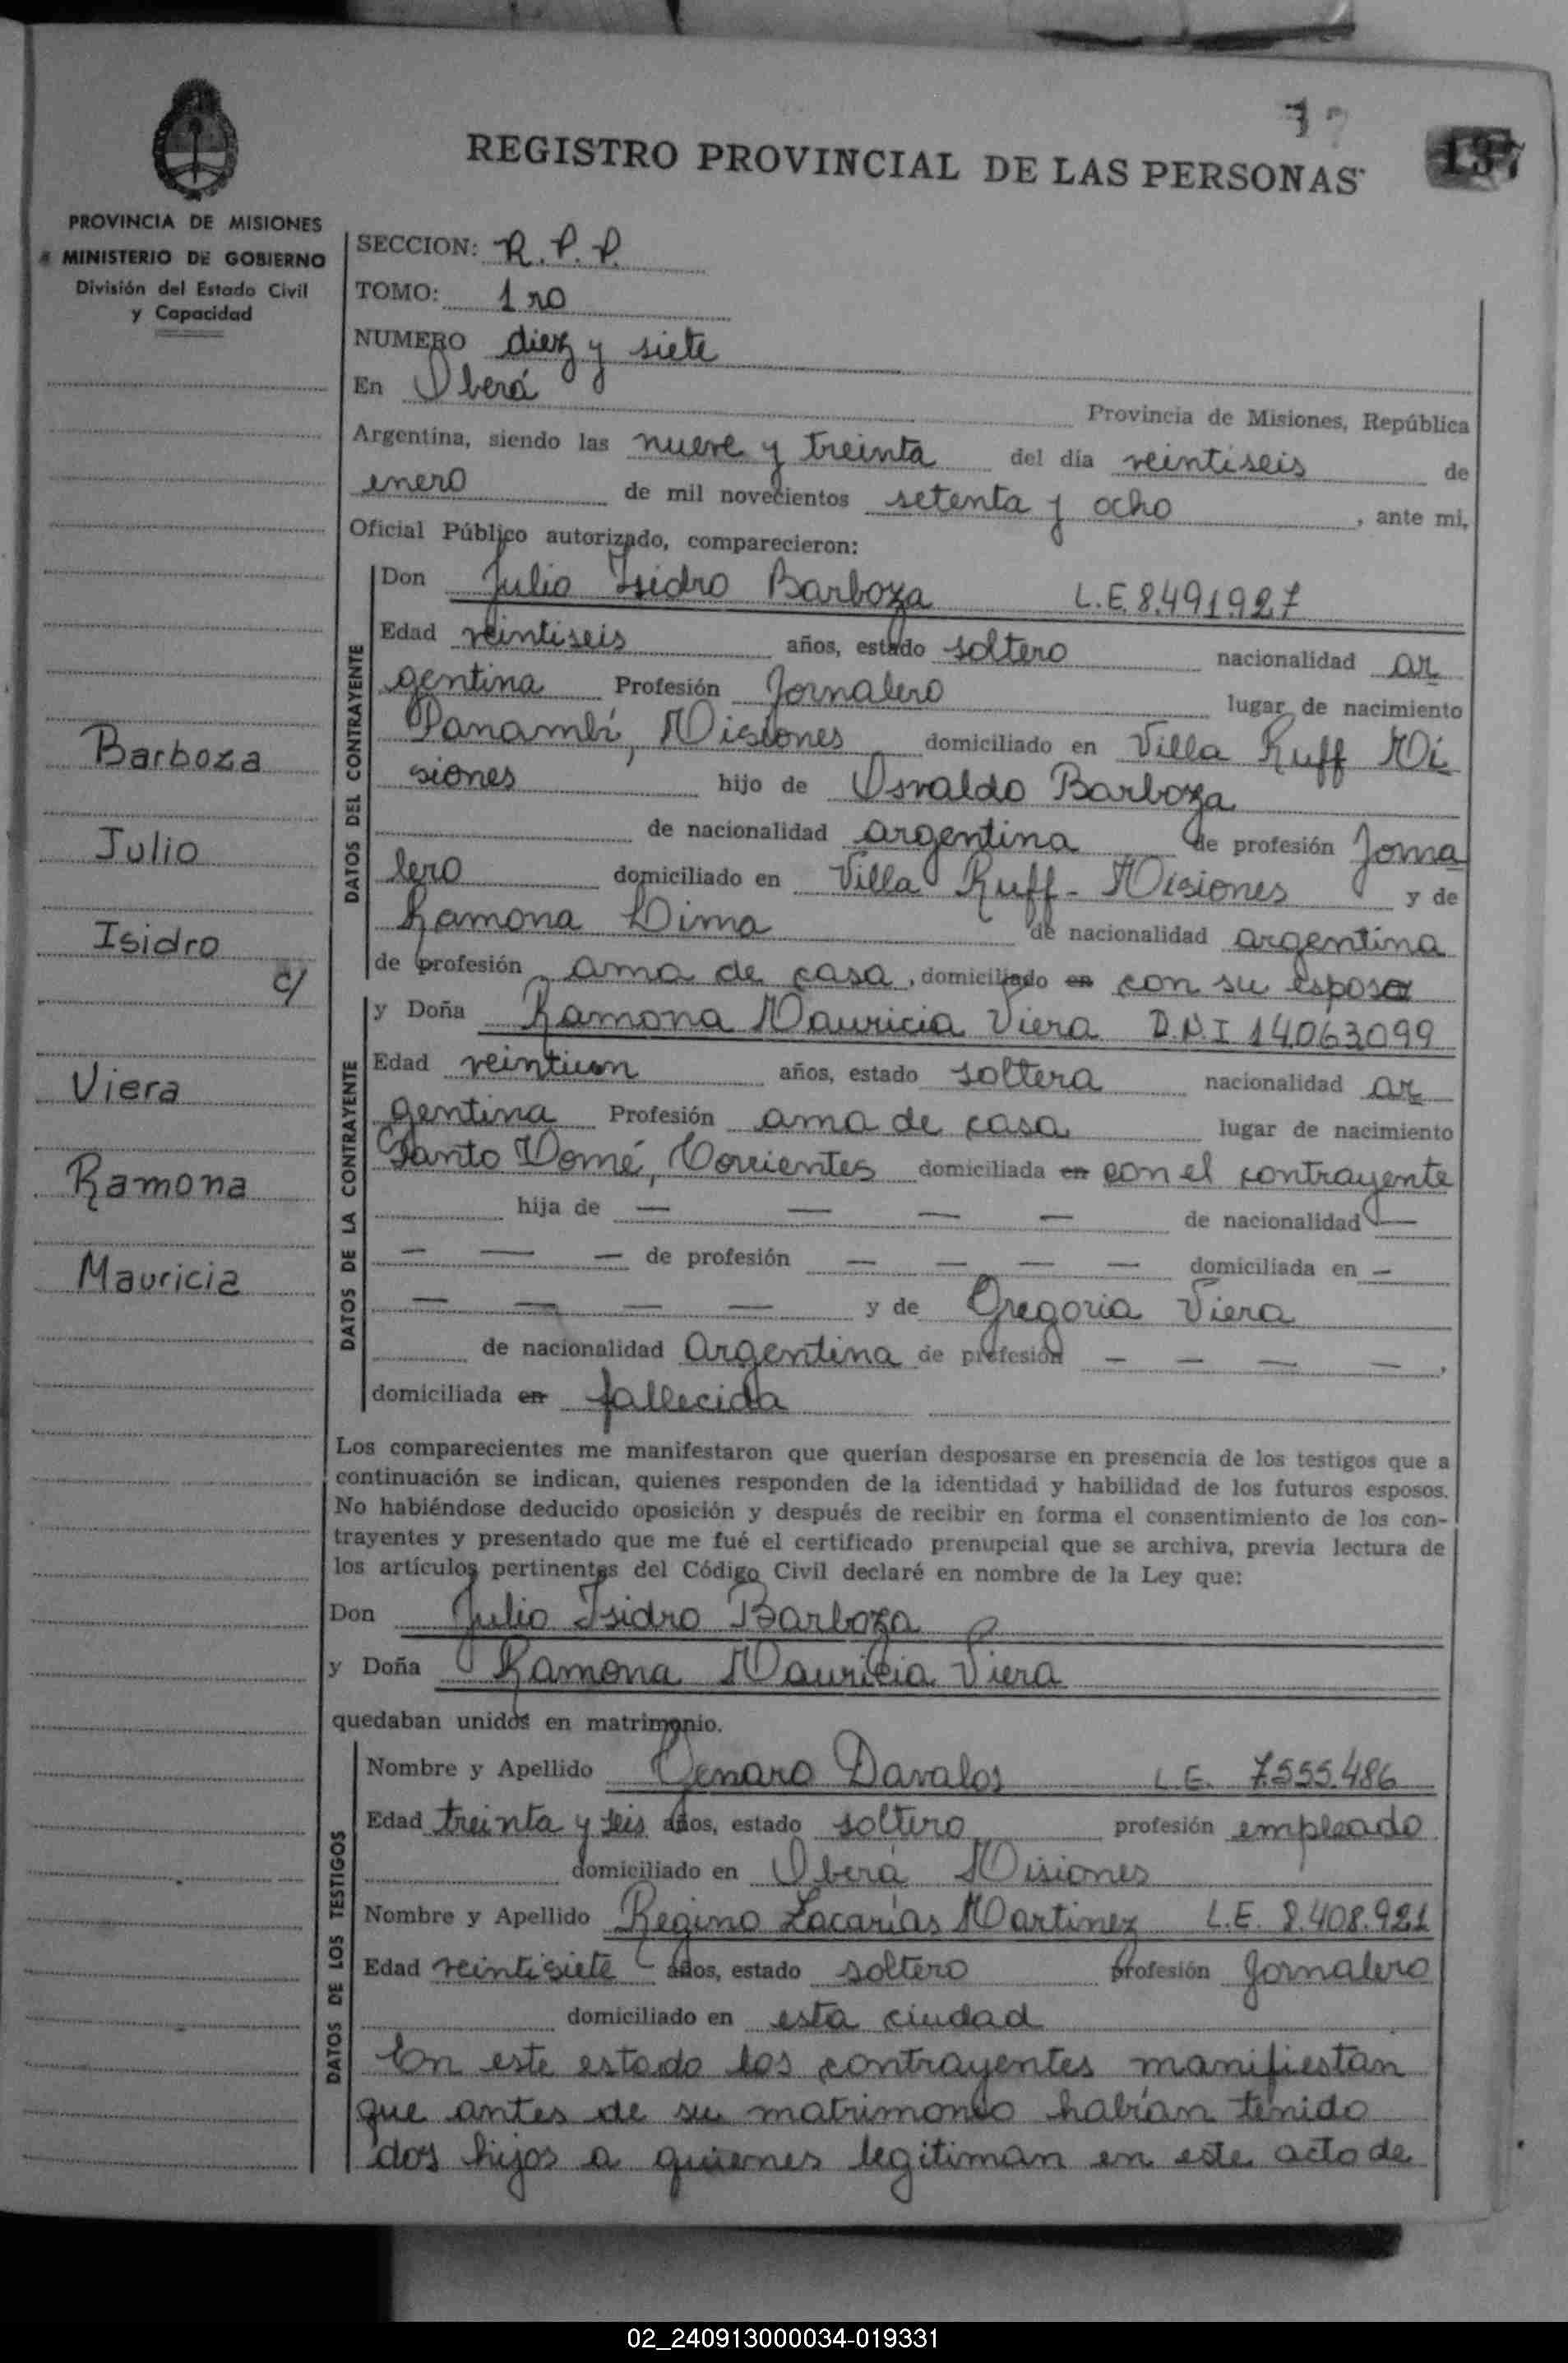 137
REGISTRO PROVINCIAL DE LAS PERSONAS
PROVINCIA DE MISIONES
MINISTERIO DE GOBIERNO
División del Estado Civil
y Capacidad
SECCION: R.P.P.
TOMO: 1ro
NUMERO diez y siete
En Oberá
Provincia de Misiones, República
Argentina, siendo las nueve y treinta del día veintiseis de
enero de mil novecientos setenta y ocho, ante mi,
Oficial Público autorizado, comparecieron:
DATOS DEL CONTRAYENTE
Don Julio Isidro Barboza L.E. 8.491.927
Edad veintiseis años, estado soltero nacionalidad ar
gentina Profesión Jornalero lugar de nacimiento
Panambí, Misiones domiciliado en Villa Ruff Mi
siones hijo de Osvaldo Barboza
de nacionalidad argentina de profesión Jorna
lero domiciliado en Villa Ruff - Misiones y de
Ramona Lima de nacionalidad argentina
de profesión ama de casa, domiciliado en con su esposo
Barboza
Julio
Isidro
c/
Viera
Ramona
Mauricia
DATOS DE LA CONTRAYENTE
y Doña Ramona Mauricia Viera D.N.I 14.063.099
Edad veintiun años, estado soltera nacionalidad ar
gentina Profesión ama de casa lugar de nacimiento
Santo Tomé, Corrientes domiciliada en con el contrayente
hija de — — — — de nacionalidad —
— — — de profesión — — — — domiciliada en —
— — — — y de Gregoria Viera
de nacionalidad Argentina de profesión — — — —,
domiciliada en fallecida
Los comparecientes me manifestaron que querían desposarse en presencia de los testigos que a
continuación se indican, quienes responden de la identidad y habilidad de los futuros esposos.
No habiéndose deducido oposición y después de recibir en forma el consentimiento de los con-
trayentes y presentado que me fué el certificado prenupcial que se archiva, previa lectura de
los artículos pertinentes del Código Civil declaré en nombre de la Ley que:
Don Julio Isidro Barboza
y Doña Ramona Mauricia Viera
quedaban unidos en matrimonio.
DATOS DE LOS TESTIGOS
Nombre y Apellido Genaro Davalos L.E. 7.555.486
Edad treinta y seis años, estado soltero profesión empleado
domiciliado en Oberá Misiones
Nombre y Apellido Regino Zacarías Martinez L.E. 8.408.921
Edad veintisiete años, estado soltero profesión Jornalero
domiciliado en esta ciudad
En este estado los contrayentes manifiestan
que antes de su matrimonio habían tenido
dos hijos a quienes legitiman en este acto de
02_240913000034-019331